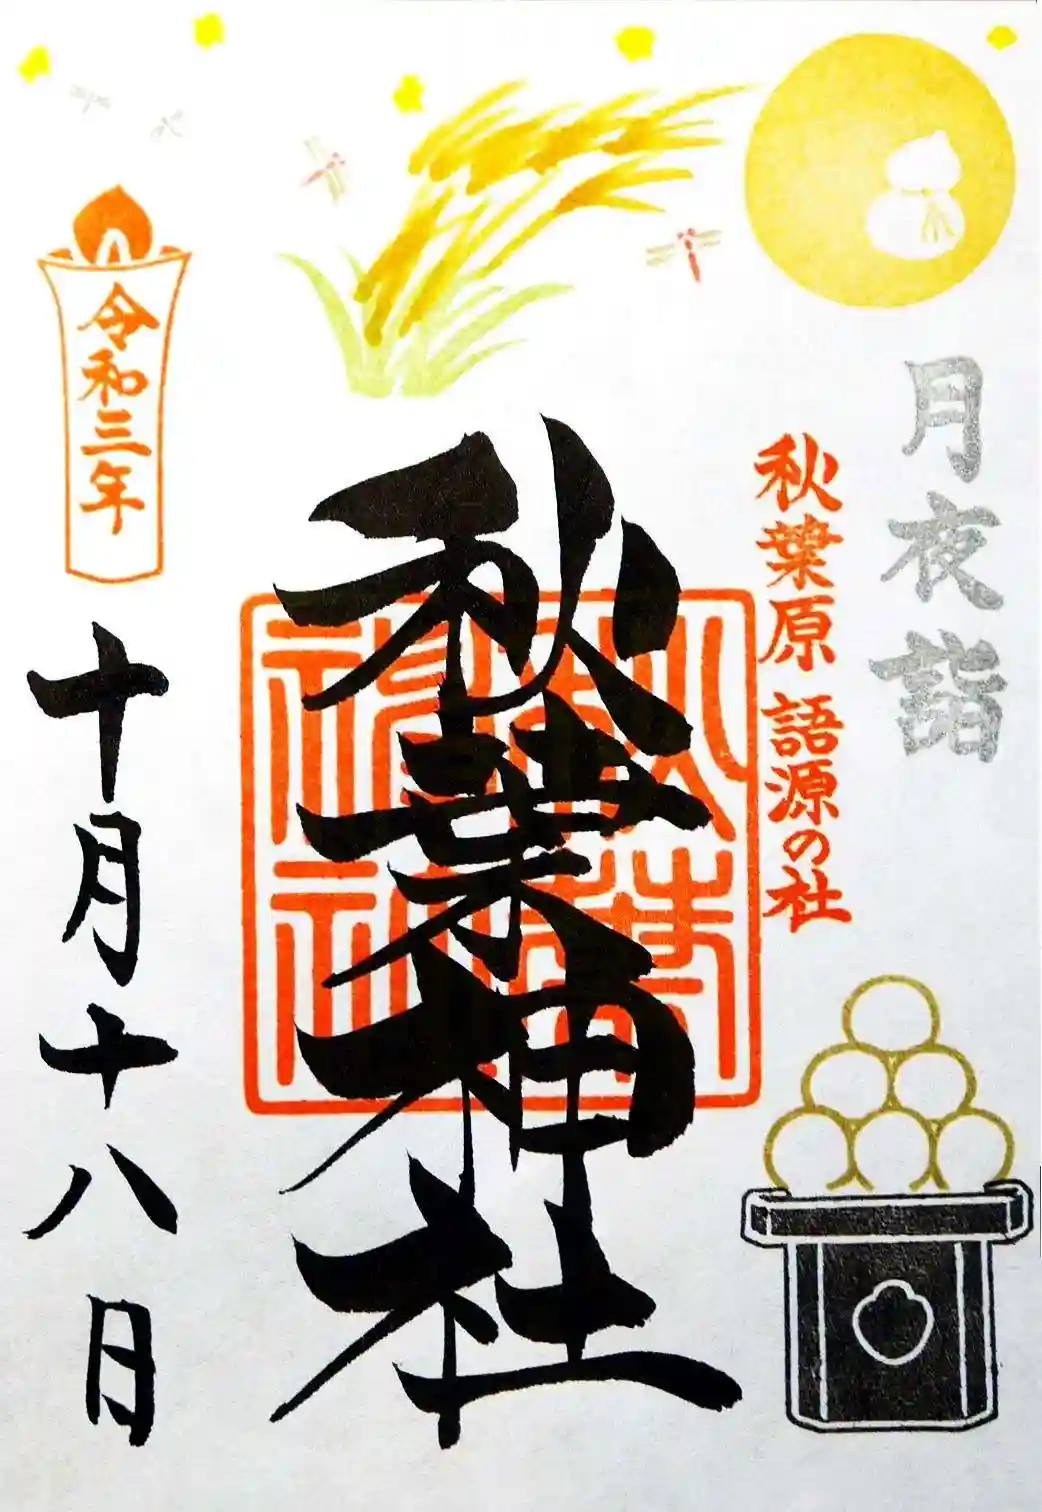 月夜詣
秋葉原 語源の社
秋葉神社
秋葉神社
令和三年
十月十八日